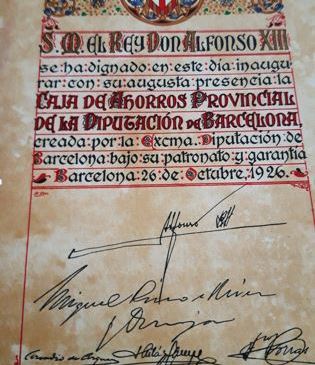 S. M. EL REY DON ALFONSO XIII
se ha dignado en este día inaugu
rar con su augusta presencia la
CAJA DE AHORROS PROVINCIAL
DE LA DIPUTACIÓN DE BARCELONA,
creada por la Excma. Diputación de
Barcelona bajo su patronato y garantía
Barcelona 26 de Octubre, 1926.
Alfonso XIII
Miguel Primo de Rivera